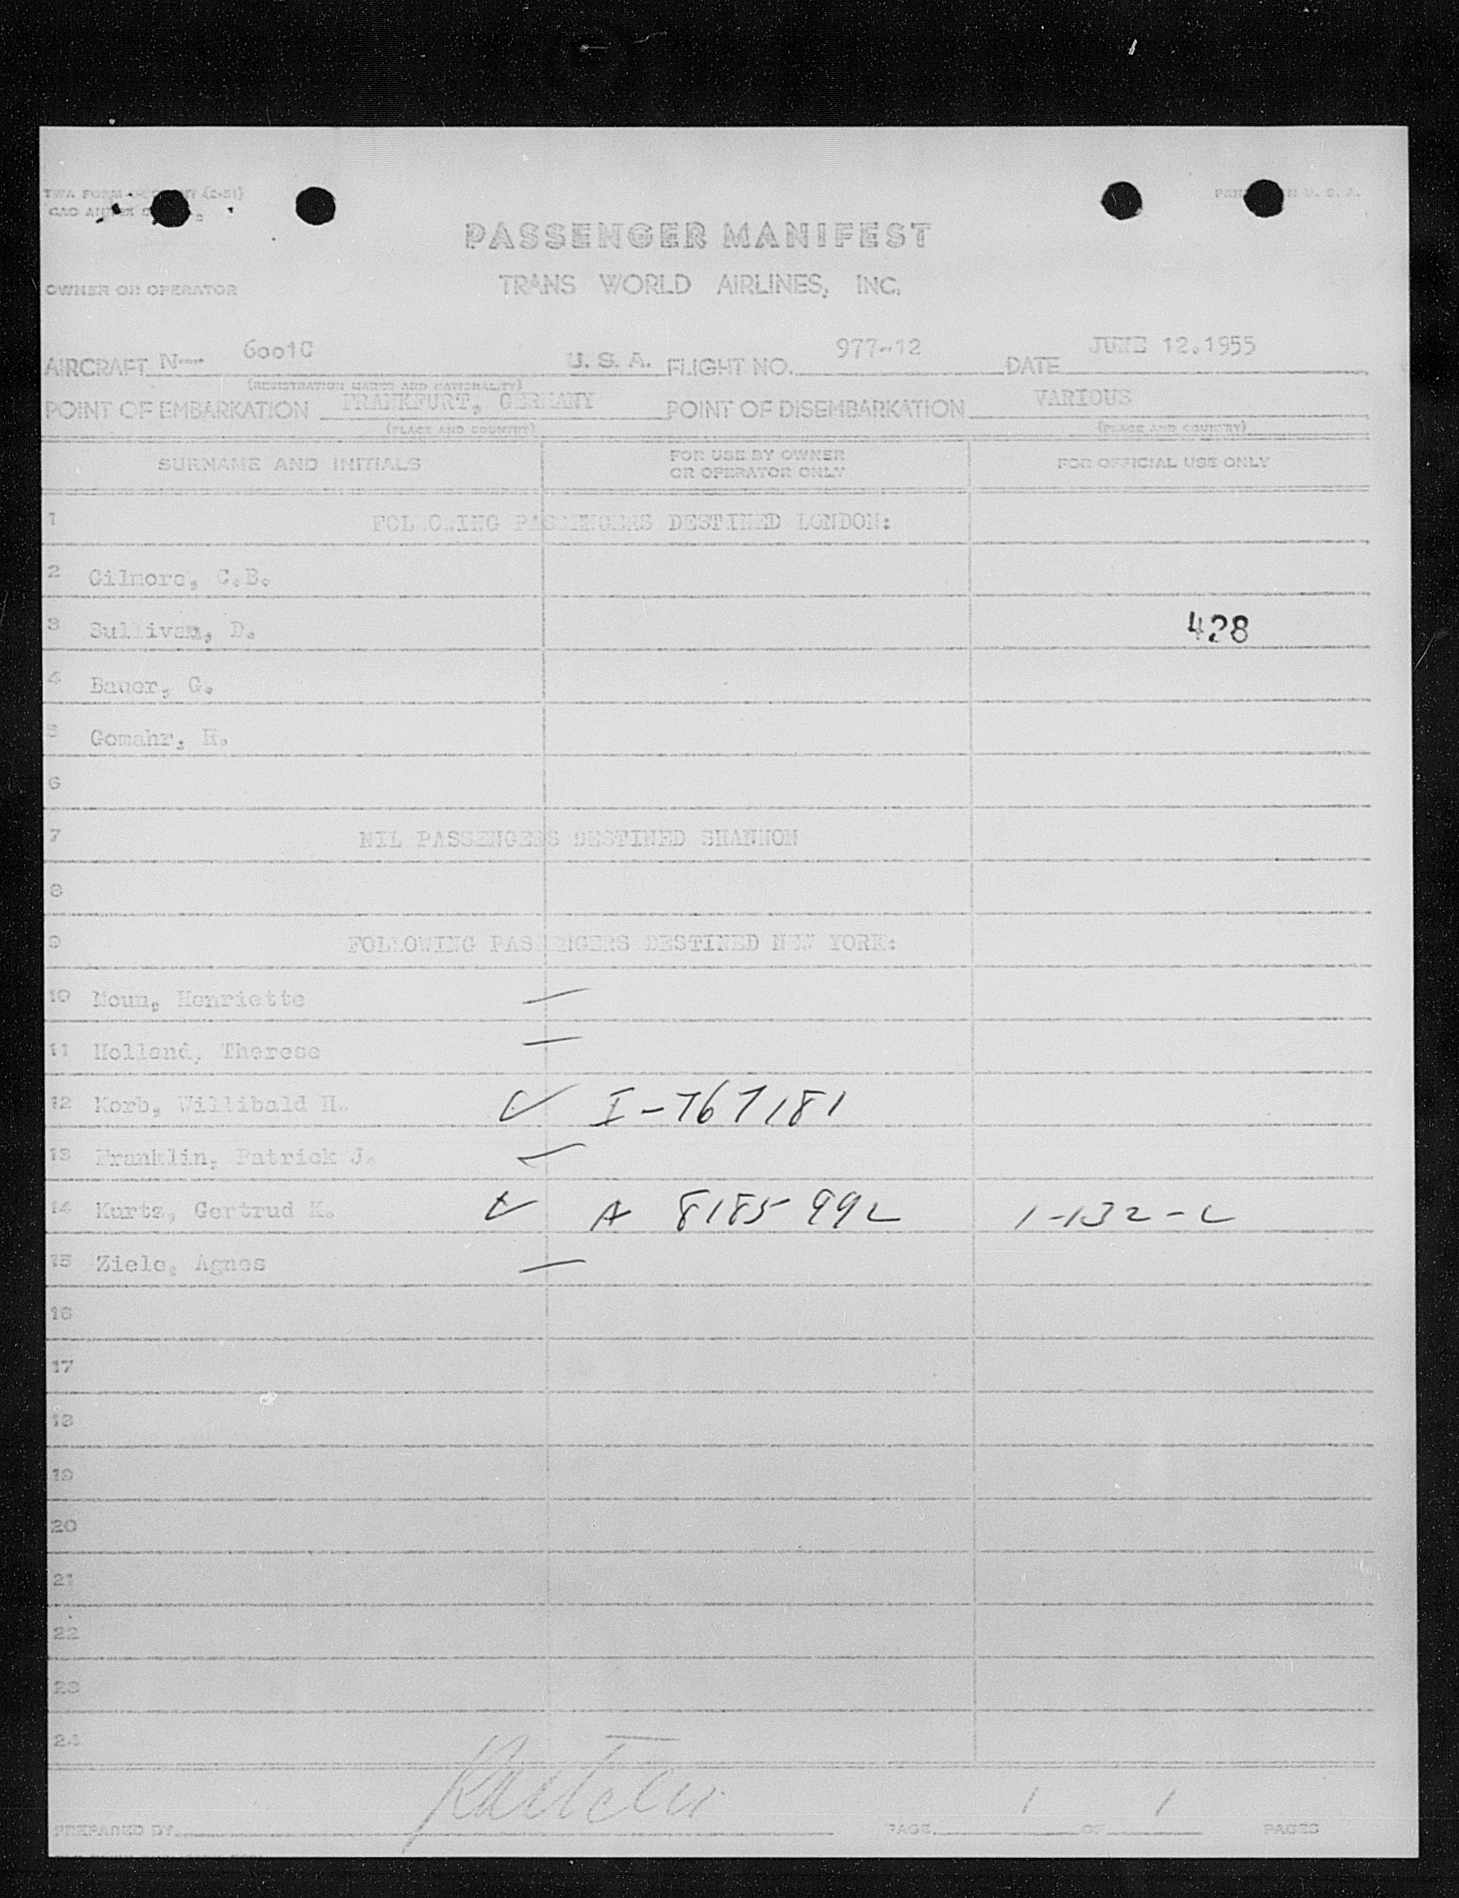 TWA FORM (2-51)
PASSENGER MANIFEST
TRANS WORLD AIRLINES, INC.
OWNER OR OPERATOR
AIRCRAFT N— 6001C U. S. A. FLIGHT NO. 977-12 DATE JUNE 12.1955
(REGISTRATION MARKS AND NATIONALITY)
POINT OF EMBARKATION FRANKFURT, GERMANY POINT OF DISEMBARKATION VARIOUS
(PLACE AND COUNTRY) (PLACE AND COUNTRY)
SURNAME AND INITIALS FOR USE BY OWNER OR OPERATOR ONLY FOR OFFICIAL USE ONLY
1 FOLLOWING PASSENGERS DESTINED LONDON:
2 Gilmore, C.B.
3 Sullivan, D. 428
4 Bauer, G.
5 Gomahr, H.
6
7 NIL PASSENGERS DESTINED SHANNON
8
9 FOLLOWING PASSENGERS DESTINED NEW YORK:
10 Henriette
11 Holland, Therese
12 Korb, Willibald H. I-767181
13 Franklin, Patrick J.
14 Kurtz, Gertrud K. A 8185 992 1-132-L
15 Ziele, Agnes
16
17
18
19
20
21
22
23
24
PREPARED BY PAGE 1 OF 1 PAGES